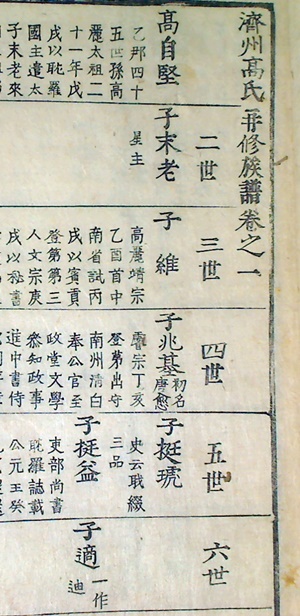 濟州高氏再修族譜卷之一
高自堅
乙那四十
五世孫高
麗太祖二
十一年戊
戌以耽羅
國主遣太
子末老來
二世
子末老
星主
三世
子維
高麗靖宗
乙酉首中
南省試丙
戌以賓貢
登第第三
人文宗庚
戌以秘書
四世
子兆基
初名
唐愈
睿宗丁亥
登第出守
南州清白
奉公官至
政堂文學
叅知政事
進中書侍
五世
子挺琥
史云職綴
三品
子挺益
吏部尚書
耽羅誌載
公元王癸
六世
子適
一作
迪